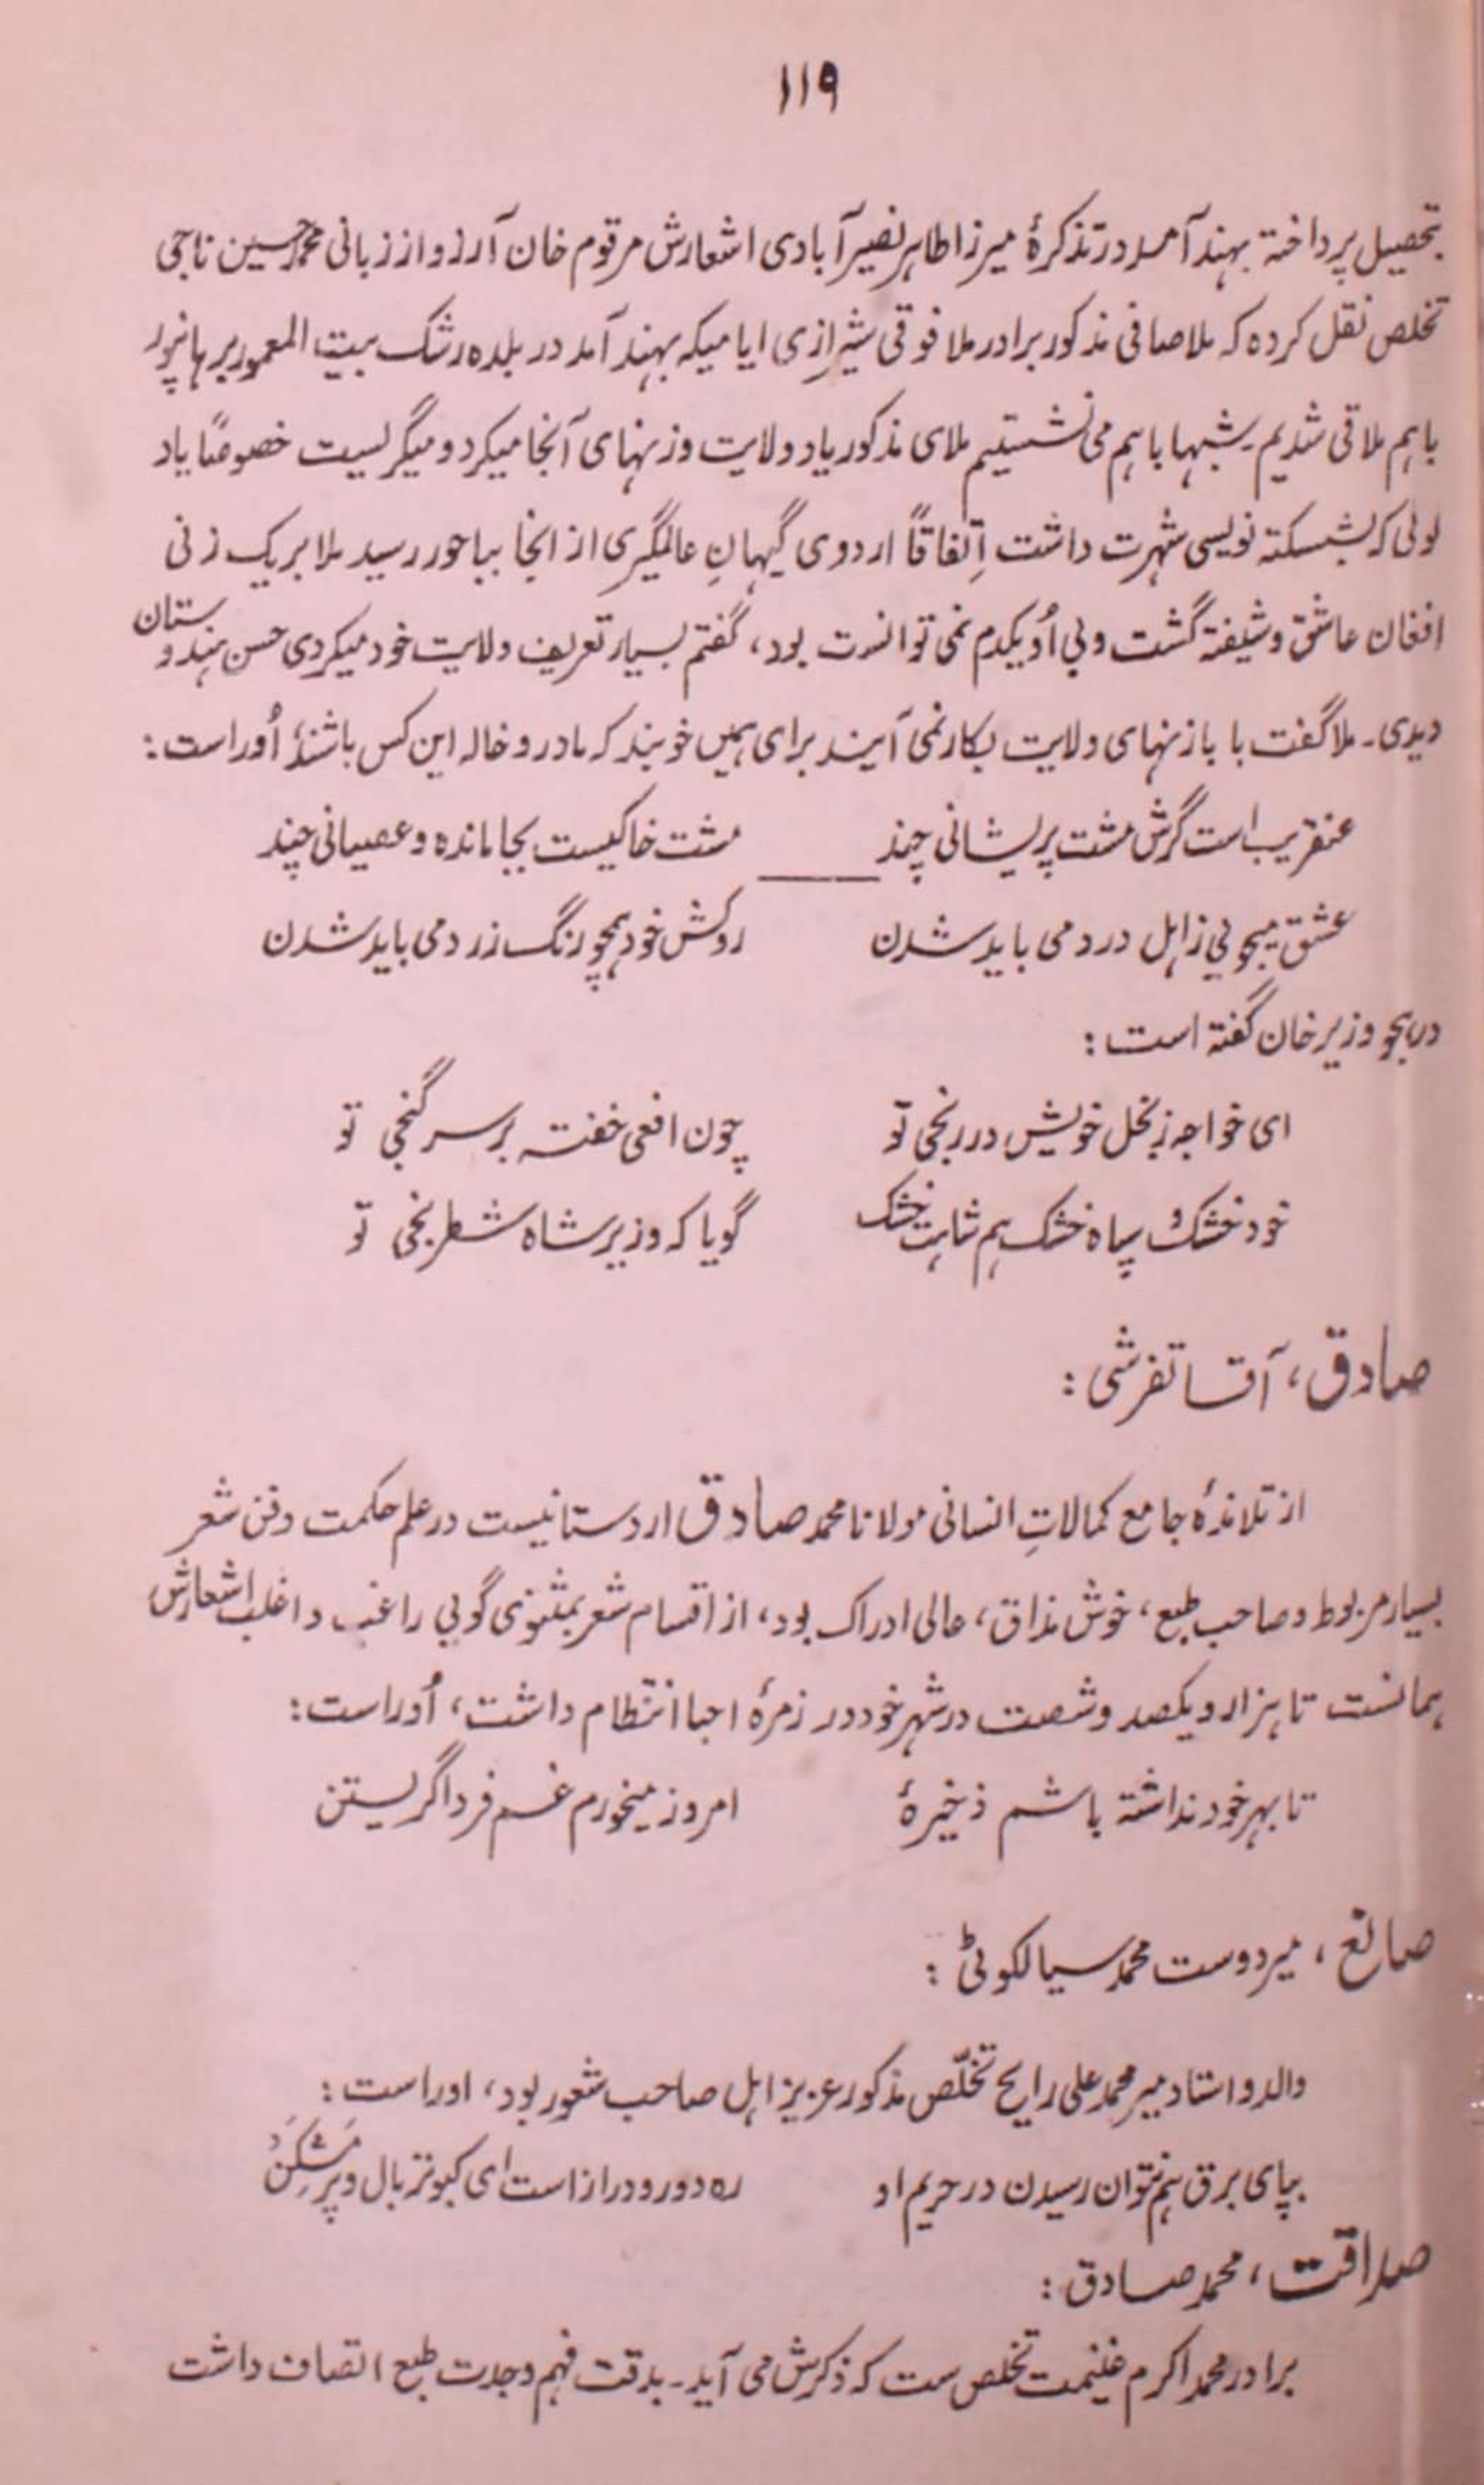 ۱۱۹
بتحصیل پرداخته بهند آمد در تذکرهٔ میرزا طاهر نصیرآبادی اشعارش مرقوم خان آرزو از زبانی محمد حسین ناجی
تخلص نقل کرده که ملا صافی مذکور برادر ملا فوقی شیرازی ایامیکه بهند آمد در بلده رشک بیت المعمور برهانپور
باهم ملاقی شدیم۔ شبها باهم می نشستیم ملای مذکور یاد ولایت و زنهای آنجا میکرد و میگریست خصوصاً یاد
لولی که بشکسته نویسی شهرت داشت اِتفاقاً اردوی گیهانِ عالمگیری از آنجا بباحور رسید ملا بر یک زنی
افغان عاشق و شیفته گشت و بی اُو یکدم نمی توانست بود، گفتم بسیار تعریف ولایت خود میکردی حسن هندوستان
دیدی۔ ملا گفت بابا زنهای ولایت بکار نمی آیند برای همین خوبند که مادر و خاله این کس باشند، اُوراست:
عنقریب است گرش مشت پریشانی چند مشت خاکیست بجا مانده و عصیانی چند
عشق میجویی ز اهل درد می باید شدن روکش خود همچو رنگ زرد می باید شدن
در هجو وزیر خان گفته است:
ای خواجه ز بخل خویش در رنجی تو چون افعی خفته بر سر گنجی تو
خود خشک و سپاه خشک هم شاهت خشک گویا که وزیر شاه شطرنجی تو
صادق، آقا تفرشی:
از تلامذهٔ جامع کمالاتِ انسانی مولانا محمد صادق اردستانیست در علم حکمت و فن شعر
بسیار مربوط و صاحب طبع، خوش مذاق، عالی ادراک بود، از اقسام شعر بمثنوی گویی راغب و اغلب اشعارش
همانست تا هزار و یکصد و شصت در شهر خود در زمرهٔ احبا انتظام داشت، اُوراست:
تا بهر خود نداشته باشم ذخیرهٔ امروز میخورم غم فردا گریستن
صانع، میر دوست محمد سیالکوٹی:
والد و استاد میر محمد علی رایج تخلّص مذکور عزیز اهل صاحب شعور بود، اوراست:
بپای برق هم نتوان رسیدن در حریم او ره دور و دراز است ای کبوتر بال و پر مَشکَن
صداقت، محمد صادق:
برادر محمد اکرم غنیمت تخلص ست که ذکرش می آید۔ بدقت فهم و جدت طبع اتصاف داشت